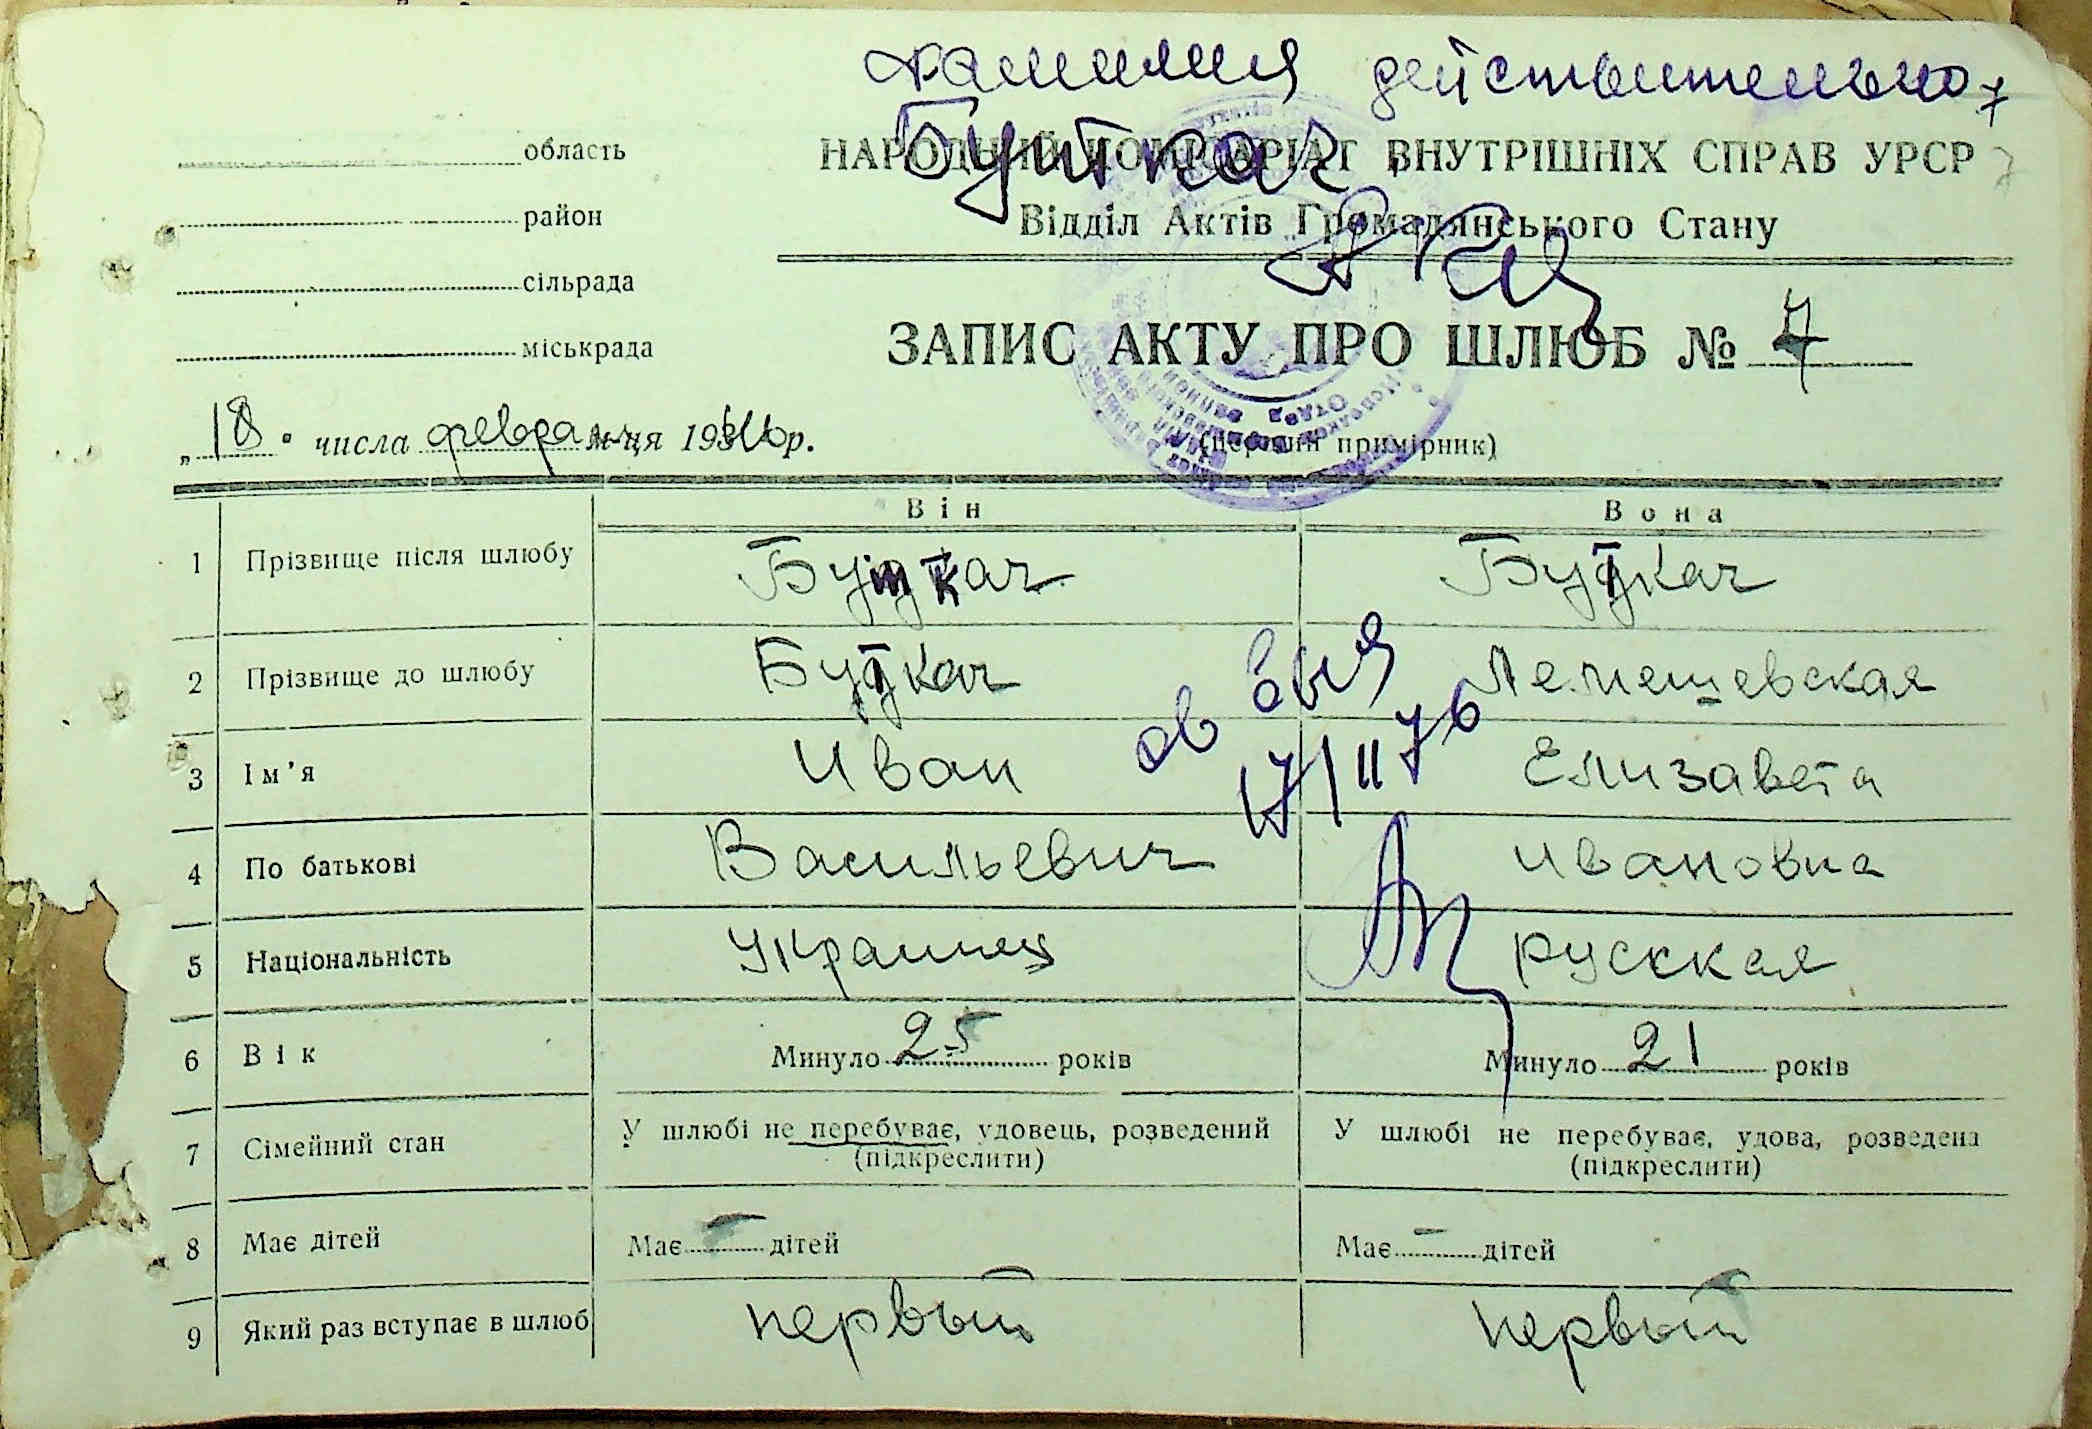 фамилия действительно
Буткач
область
НАРОДНИЙ КОМІСАРІАТ ВНУТРІШНІХ СПРАВ УРСР
район
Відділ Актів Громадянського Стану
сільрада
ЗАПИС АКТУ ПРО ШЛЮБ № 7
міськрада
„18" числа февраля м-ця 1946 р.
(перший примірник)
Він Вона
1 Прізвище після шлюбу Буткач Буткач
2 Прізвище до шлюбу Буткач Лемешевская
3 Ім'я Иван Елизавета
17/II 76
4 По батькові Васильевич Ивановна
5 Національність Украинец русская
6 Вік Минуло 25 років Минуло 21 років
7 Сімейний стан У шлюбі не перебуває, удовець, розведений У шлюбі не перебуває, удова, розведена
(підкреслити) (підкреслити)
8 Має дітей Має — дітей Має — дітей
9 Який раз вступає в шлюб первый первый